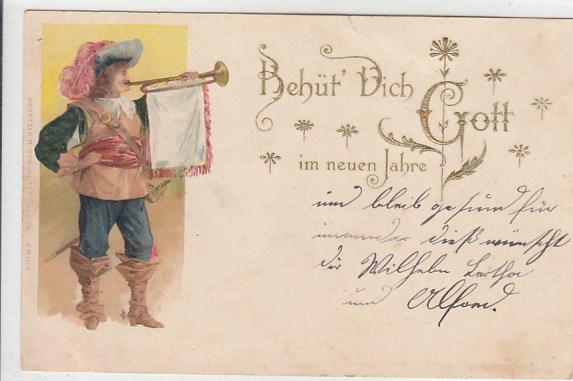 Behüt' Dich Gott
im neuen Jahre
und bleib gesund für
immer dieß wünscht
dir Wilhelm Bertha
und Alfons.